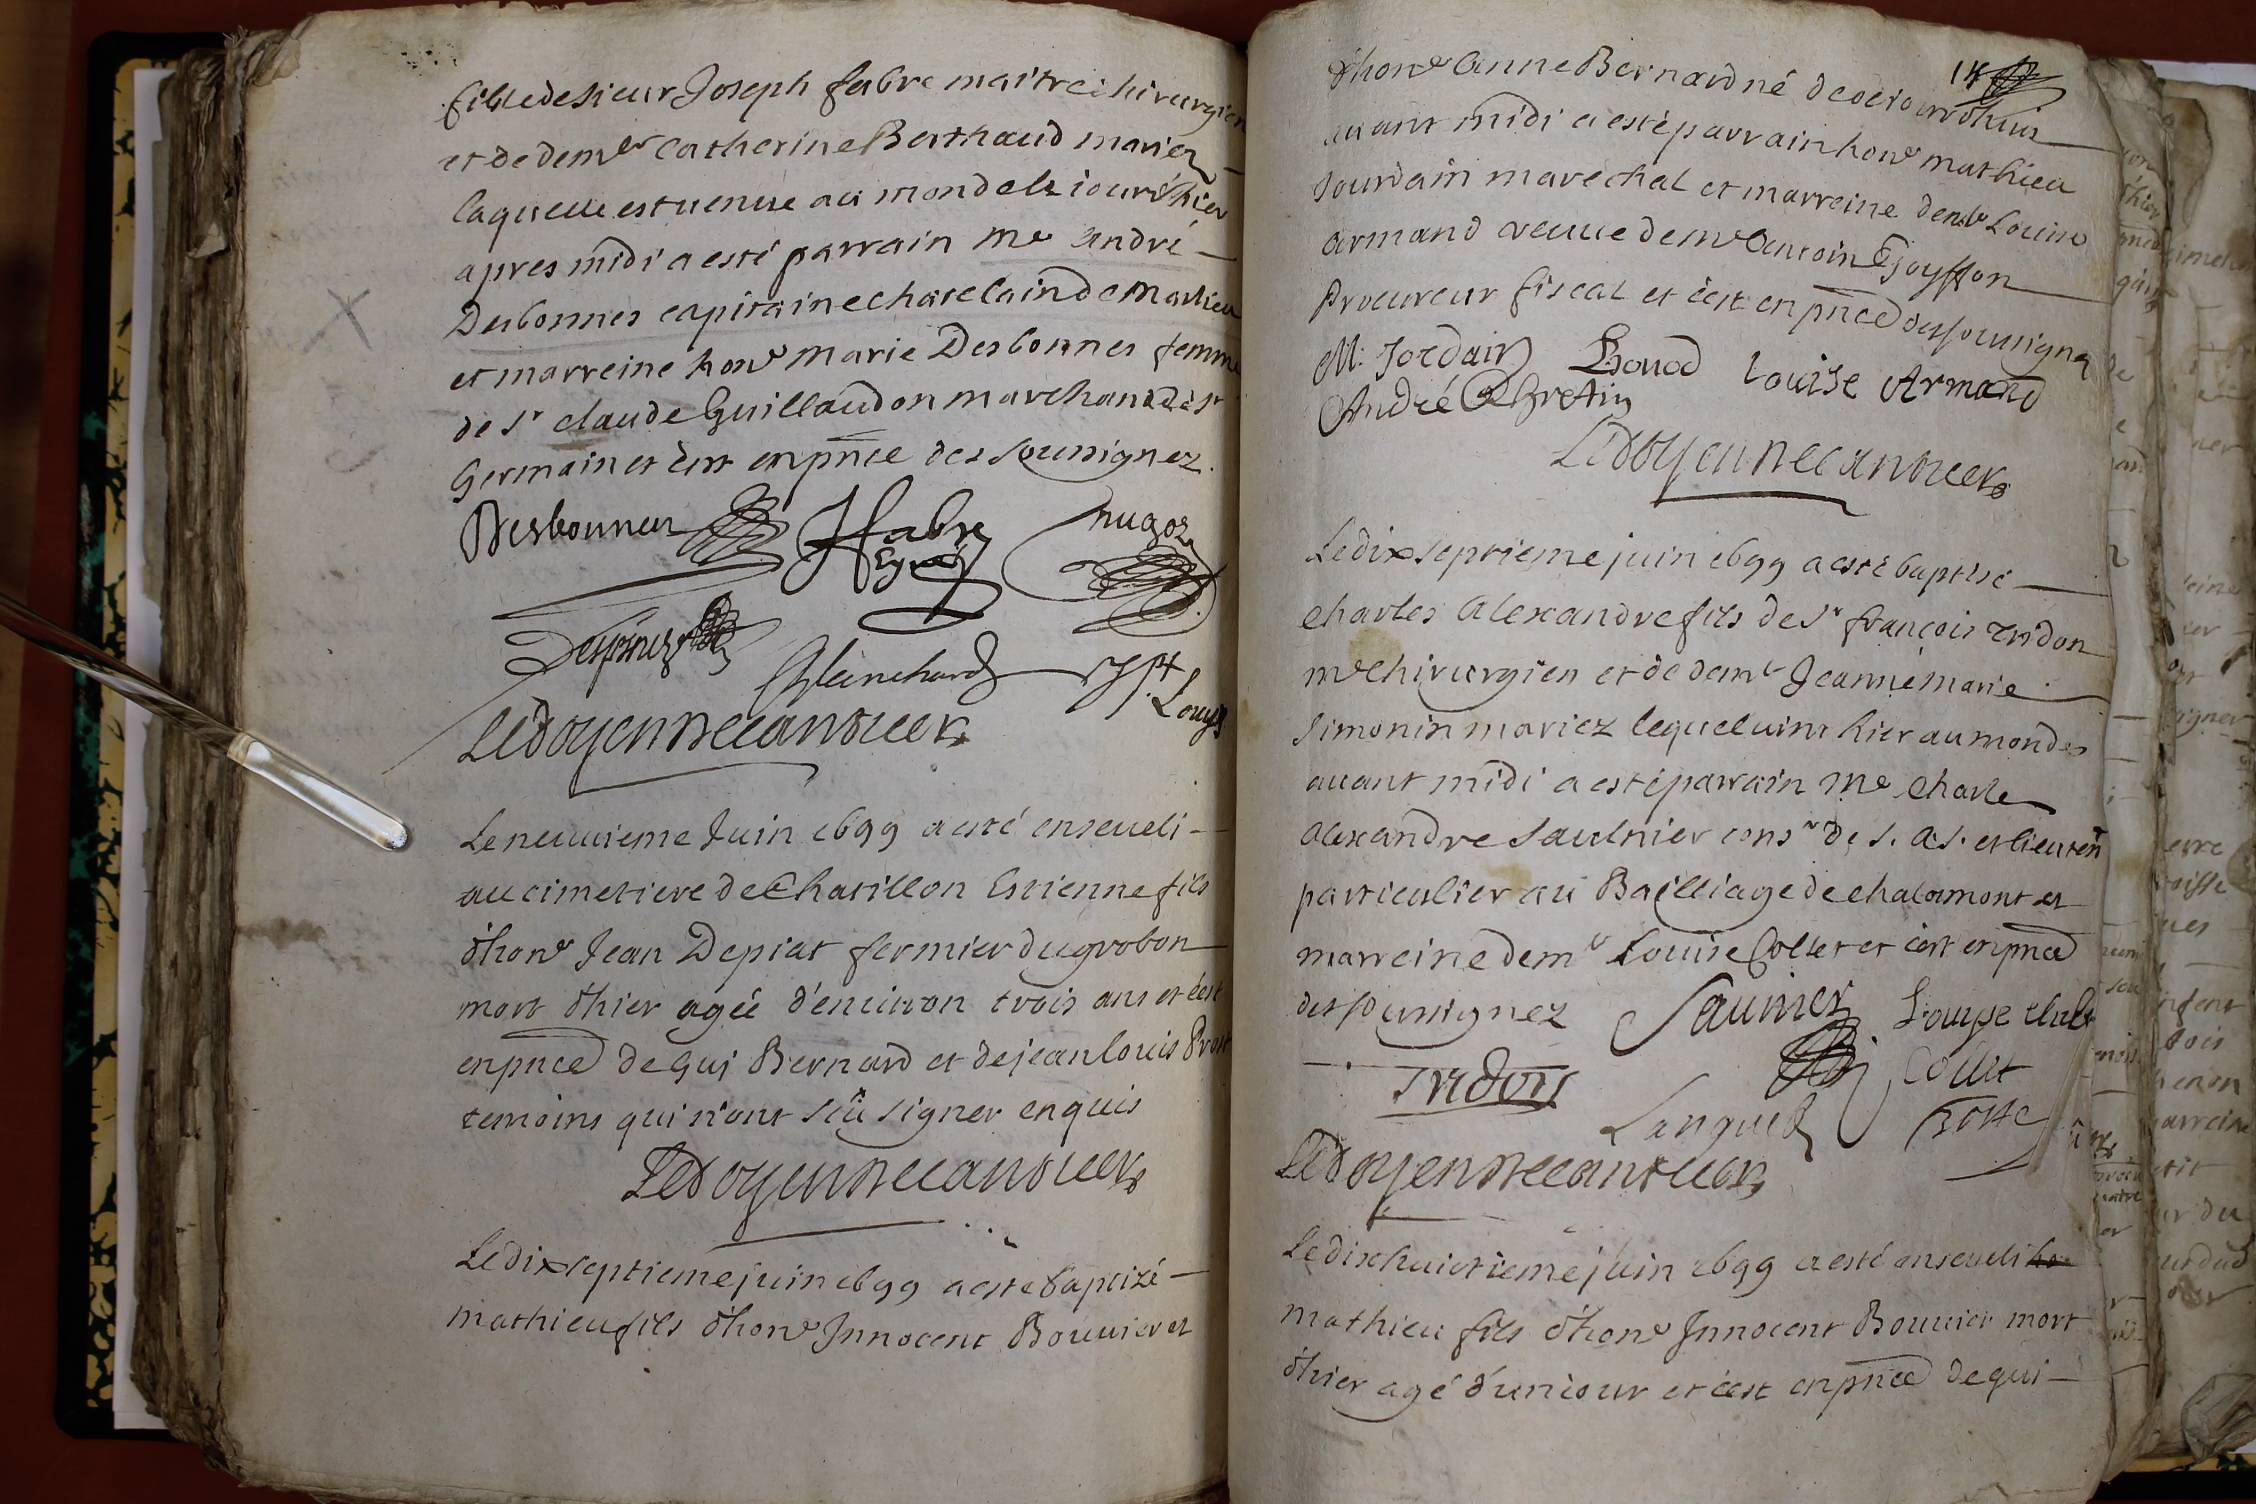 fille de sieur Joseph fabre maitre chirurgien
et de dem.lle catherine Berthaud mariez
laquelle est venue au monde le iour d'hier
apres midi a esté parrain Me andré
Desbonnes capitaine chatelain de Marlieu
et marreine hon.e Marie Desbonnes femme
de Sr claude Guillaudon marchand à St
Germain et c'est en pnce des soussignez.
Desbonnes Jfabre hugoz
Despiney
Blanchard Jpt Louys
Ledoyen
Le neuvieme Juin 1699 a esté enseveli
au cimetiere de Chatillon Estienne fils
d'hon.e Jean Depiat fermier du grobon
mort d'hier agéé d'environ trois ans et c'est
en pnce de gui Bernard et de jean louis Prost
temoins qui n'ont sçû signer enquis
Ledoyen
Le dixseptieme juin 1699 a esté baptizé
mathieu fils d'hon.e Innocent Bouvier et
14
d'hon.e Anne Bernard né de ce iourd'huis
avant midi a esté parrain hon.e mathieu
Jourdain marechal et marreine dem.lle Louise
armand veuve de me Antoine Goyffon
Procureur fiscal et c'est en pnce des soussignez
M. Jordain Louise Armand
André Chretin
Ledoyen
Le dix septieme juin 1699 a esté baptisé
charles Alexandre fils de Sr françois tridon
me chirurgien et de dem.lle Jeanne marie
Simonin mariez lequel vint hier au monde
avant midi a esté parrain Me Charle
Alexandre Saulnier cons.r de S. A. S. et lieuten
particulier au Bailliage de chalamont et
marreine dem.lle Louise Collet et c'est en pnce
des soussignez Saunier Louyse
Collet
tridon
Ledoyen
Le dix huictieme juin 1699 a esté enseveli
mathieu fils d'hon.e Innocent Bouvier mort
d'hier agé d'un iour et c'est en pnce de gui